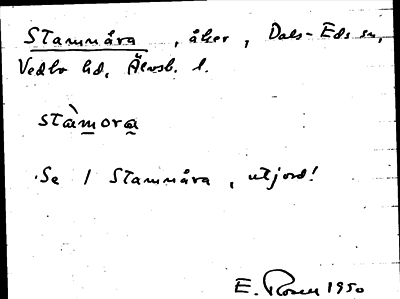 Stamnåra, åker, Dals-Eds sn,
Vedbo hd, Älvsb. l.
stàmora
Se 1 Stamnåra, utjord!
E. Rosen 1950